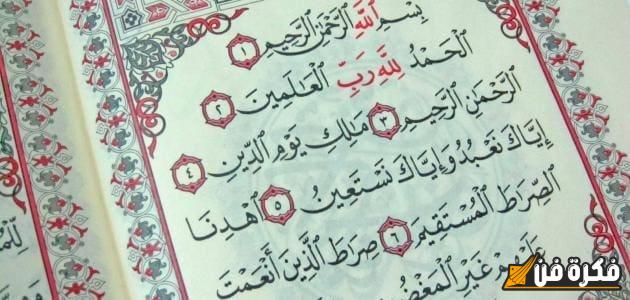 بِسْمِ ٱللَّهِ ٱلرَّحْمَٰنِ ٱلرَّحِيمِ ١
ٱلْحَمْدُ لِلَّهِ رَبِّ ٱلْعَٰلَمِينَ ٢
ٱلرَّحْمَٰنِ ٱلرَّحِيمِ ٣ مَٰلِكِ يَوْمِ ٱلدِّينِ ٤
إِيَّاكَ نَعْبُدُ وَإِيَّاكَ نَسْتَعِينُ ٥ ٱهْدِنَا
ٱلصِّرَٰطَ ٱلْمُسْتَقِيمَ ٦ صِرَٰطَ ٱلَّذِينَ أَنْعَمْتَ
عَلَيْهِمْ غَيْرِ ٱلْمَغْضُ
فكرة فن